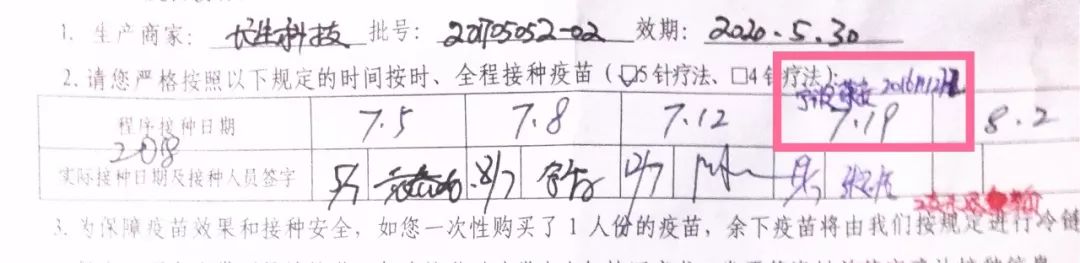 1. 生产商家: 长生科技 批号: 201705052-02 效期: 2020.5.30
2.请您严格按照以下规定的时间按时、全程接种疫苗(☑5针疗法、□4针疗法):
程序接种日期 7.5 7.8 7.12 7.19 8.2
2018
实际接种日期及接种人员签字 5/7 8/7 12/7 19/7
3.为保障疫苗效果和接种安全,如您一次性购买了1人份的疫苗,余下疫苗将由我们按规定进行冷链